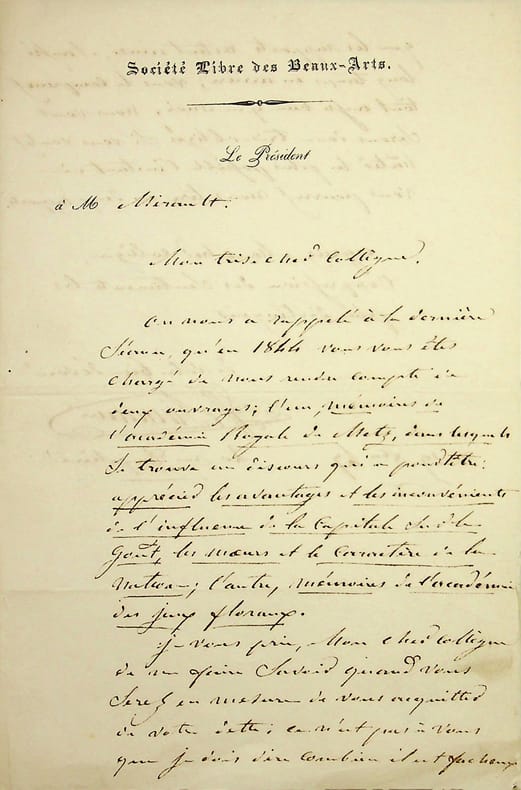 Société Libre des Beaux-Arts.
Le Président
à M Mirault.
Mon très cher Collègue.
On nous a rappelé à la dernière
Séance, qu'en 1844 vous vous êtes
chargé de nous rendre compte de
deux ouvrages; l'un, mémoires de
l'académie Royale de Metz, dans lesquels
se trouve un discours qui a pour titre:
apprécier les avantages et les inconvénients
de l'influence de la Capitale sur le
Goût, les mœurs et le Caractère de la
nation; l'autre, mémoires de l'académie
des jeux floraux.
Je vous prie, Mon cher Collègue
de me faire Savoir quand vous
Serez en mesure de vous acquitter
de votre dette; ce n'est pas à vous
que je dois dire combien il est facheux